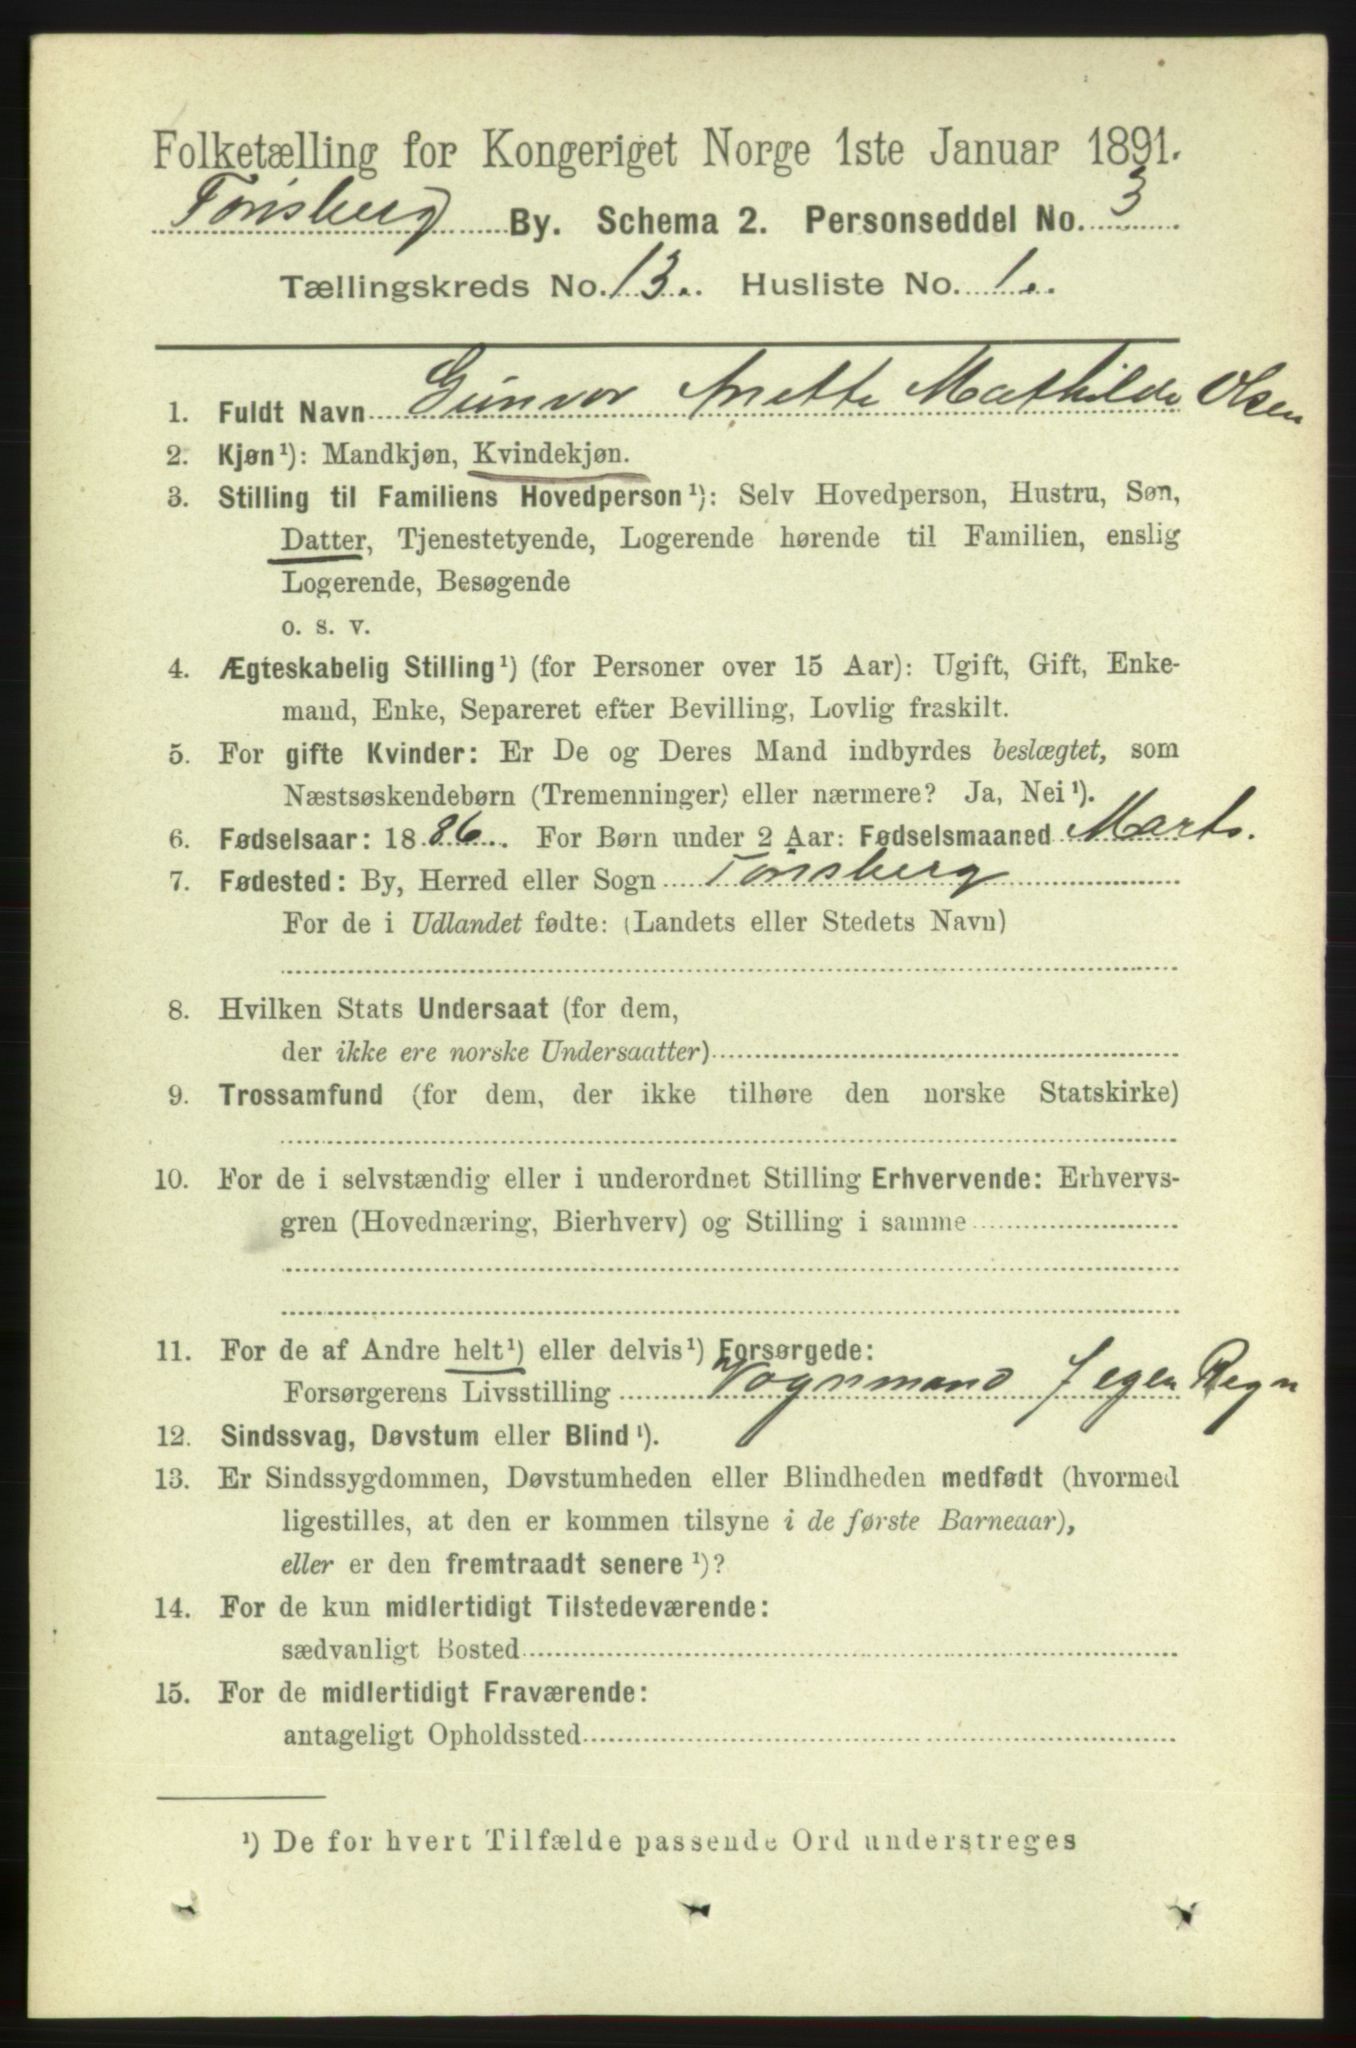 Folketælling for Kongeriget Norge 1ste Januar 1891.
Tønsberg By. Schema 2. Personseddel No. 3
Tællingskreds No. 13. Husliste No. 1.
1. Fuldt Navn Gunvor Anette Mathilde Olsen
2. Kjøn¹): Mandkjøn, Kvindekjøn.
3. Stilling til Familiens Hovedperson¹): Selv Hovedperson, Hustru, Søn,
Datter, Tjenestetyende, Logerende hørende til Familien, enslig
Logerende, Besøgende
o. s. v.
4. Ægteskabelig Stilling¹) (for Personer over 15 Aar): Ugift, Gift, Enke-
mand, Enke, Separeret efter Bevilling, Lovlig fraskilt.
5. For gifte Kvinder: Er De og Deres Mand indbyrdes beslægtet, som
Næstsøskendebørn (Tremenninger) eller nærmere? Ja, Nei¹).
6. Fødselsaar: 1886. For Børn under 2 Aar: Fødselsmaaned Marts.
7. Fødested: By, Herred eller Sogn Tønsberg
For de i Udlandet fødte: (Landets eller Stedets Navn)
8. Hvilken Stats Undersaat (for dem,
der ikke ere norske Undersaatter)
9. Trossamfund (for dem, der ikke tilhøre den norske Statskirke)
10. For de i selvstændig eller i underordnet Stilling Erhvervende: Erhvervs-
gren (Hovednæring, Bierhverv) og Stilling i samme
11. For de af Andre helt¹) eller delvis¹) Forsørgede:
Forsørgerens Livsstilling Vognmand f egen Regn
12. Sindssvag, Døvstum eller Blind¹).
13. Er Sindssygdommen, Døvstumheden eller Blindheden medfødt (hvormed
ligestilles, at den er kommen tilsyne i de første Barneaar),
eller er den fremtraadt senere¹)?
14. For de kun midlertidigt Tilstedeværende:
sædvanligt Bosted
15. For de midlertidigt Fraværende:
antageligt Opholdssted
¹) De for hvert Tilfælde passende Ord understreges